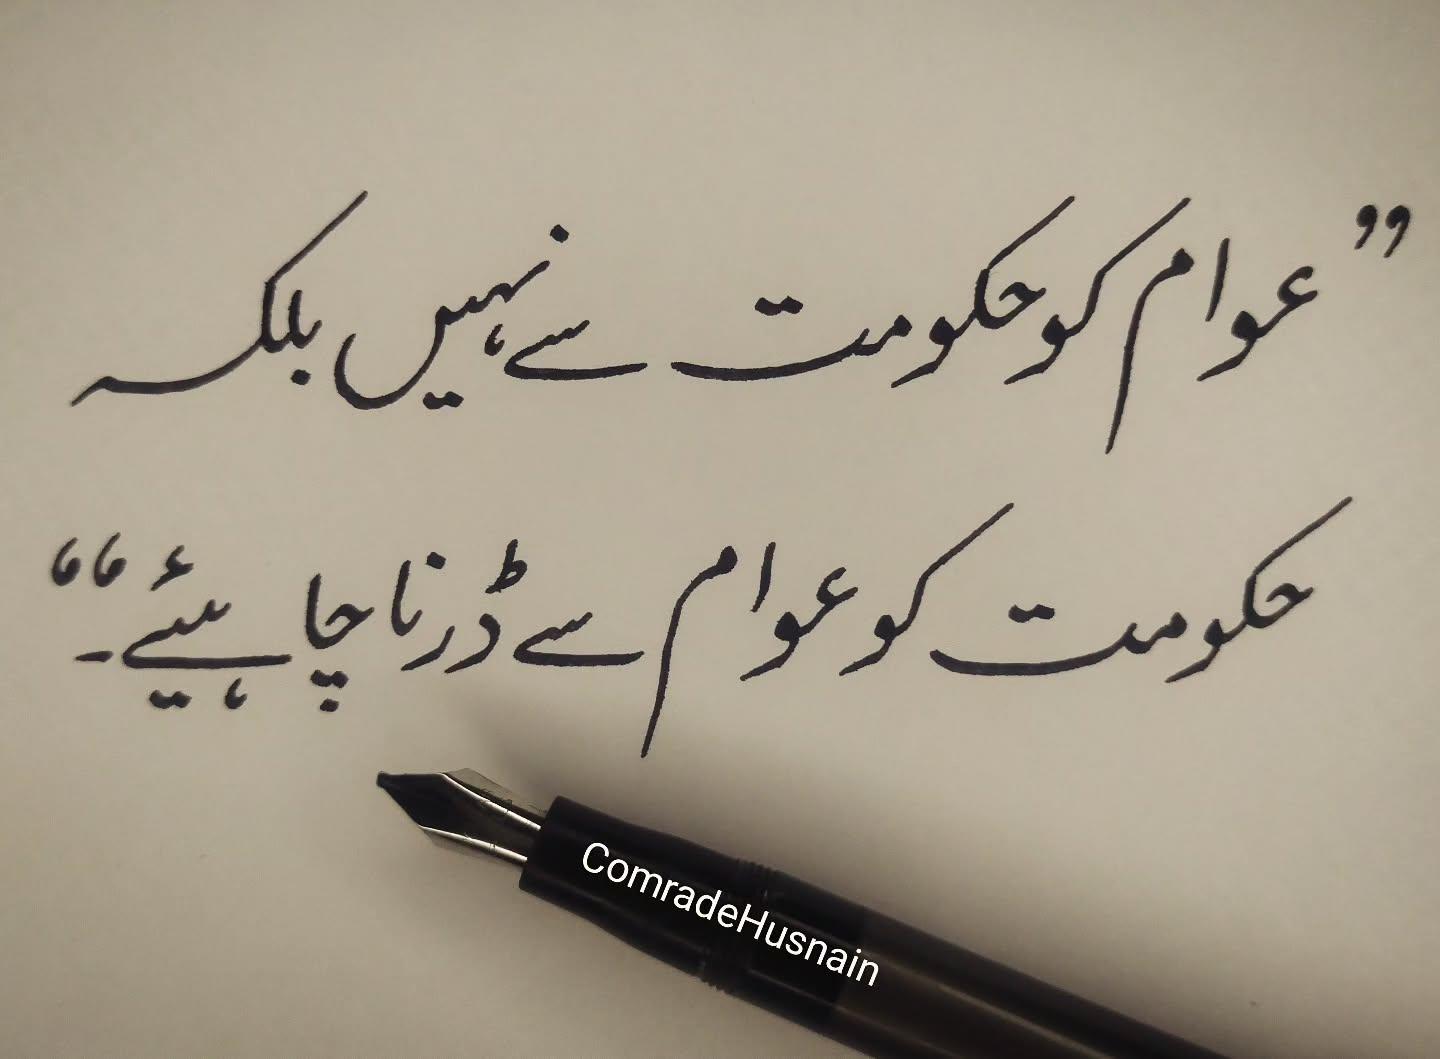 ”عوام کو حکومت سے نہیں بلکہ
حکومت کو عوام سے ڈرنا چاہیئے۔“
ComradeHusnain